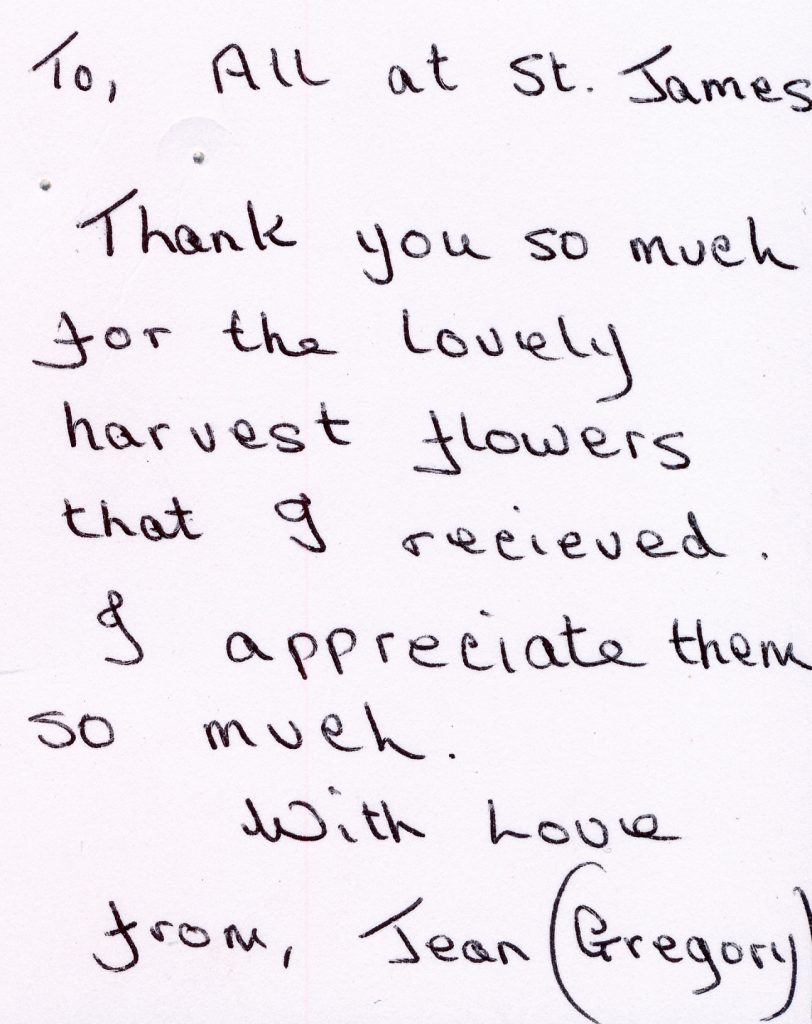 To, All at St. James
Thank you so much
for the lovely
harvest flowers
that I recieved.
I appreciate them
so much.
With Love
from, Jean (Gregory)